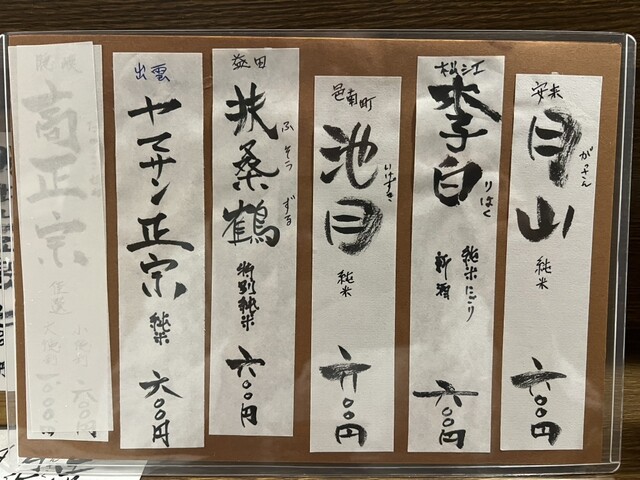 安来
月山
がっさん
純米
六〇〇円
松江
李白
りはく
純米にごり
新酒
六〇〇円
邑南町
池月
いけずき
純米
六〇〇円
益田
扶桑鶴
ふそうづる
特別純米
六〇〇円
出雲
ヤマサン正宗
純米
六〇〇円
高正宗